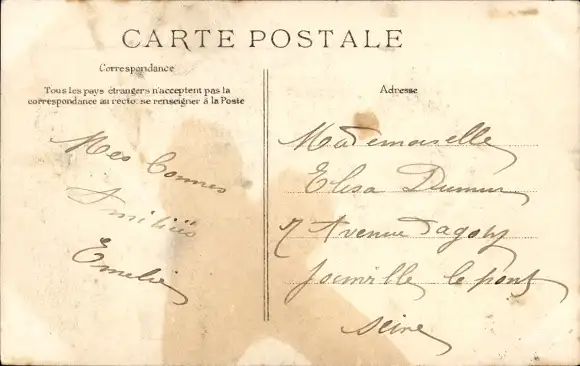 CARTE POSTALE
Correspondance
Tous les pays étrangers n'acceptent pas la
correspondance au recto: se renseigner à la Poste
Mes bonnes
Amitiés
Emelie
Adresse
Mademoiselle
Elisa
7 Avenue
Joinville le pont
Seine